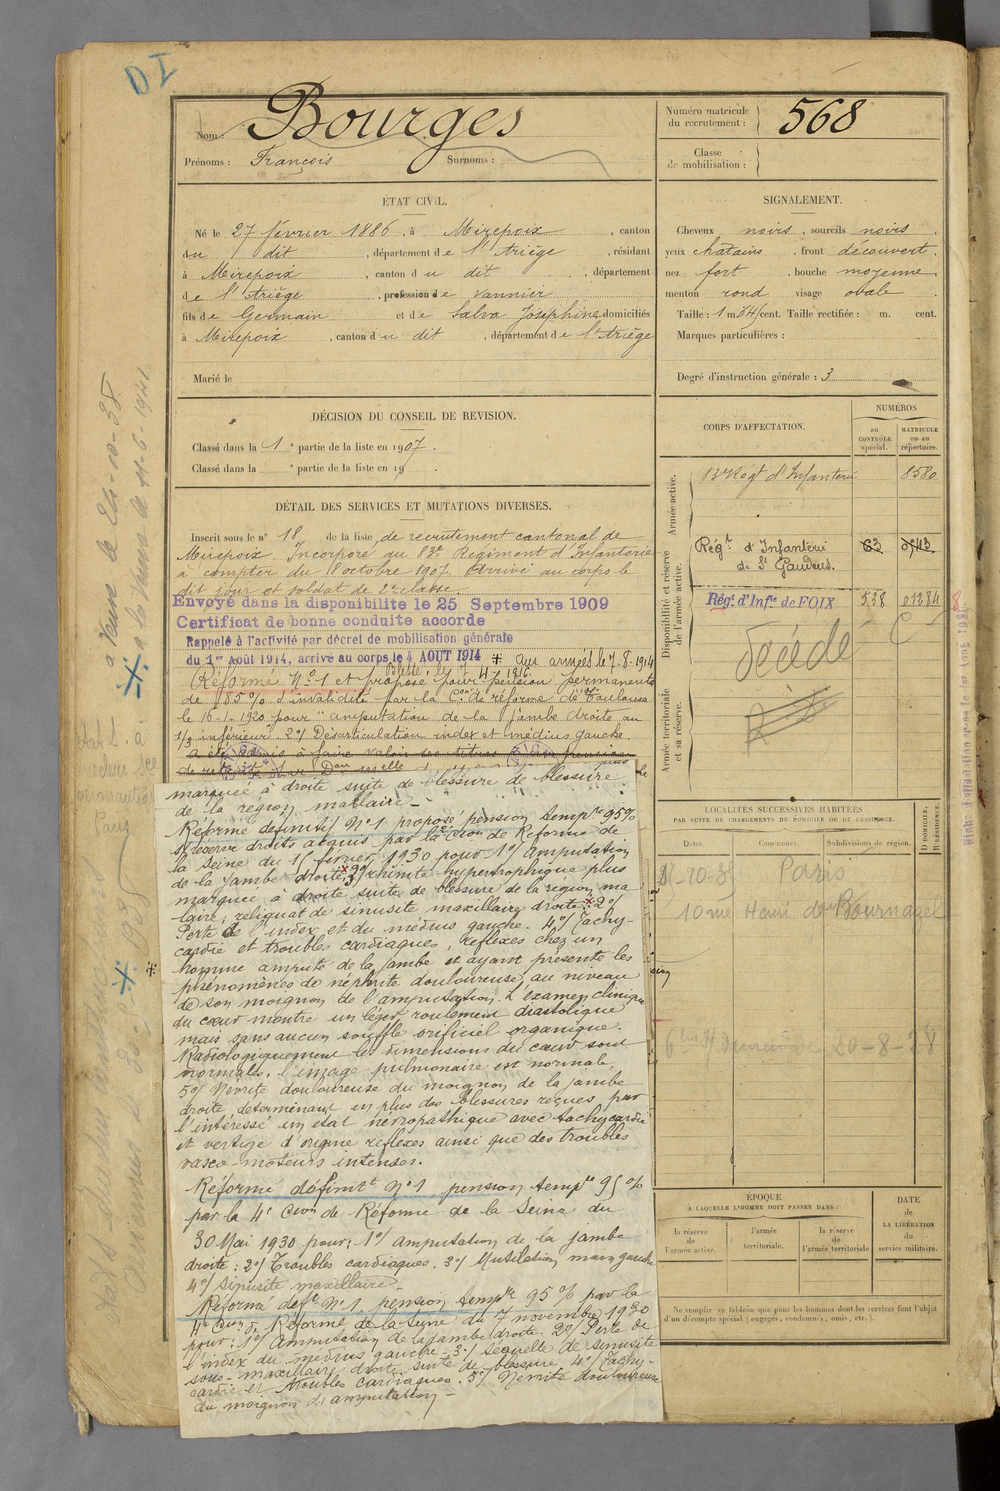 D I
Nom : Bourges
Prénoms : François Surnoms :
Numéro matricule du recrutement : 568
Classe de mobilisation :
ÉTAT CIVIL.
Né le 27 février 1886, à Mirepoix, canton
du dit, département de l'Ariège, résidant
à Mirepoix, canton du dit, département
de l'Ariège, profession de vannier
fils de Germain et de Salva Joséphine domiciliés
à Mirepoix, canton du dit, département de l'Ariège
Marié le
SIGNALEMENT.
Cheveux noirs, sourcils noirs.
yeux chatains, front découvert.
nez fort, bouche moyenne
menton rond visage ovale.
Taille : 1 m 64 cent. Taille rectifiée : m. cent.
Marques particulières :
Degré d'instruction générale : 3
DÉCISION DU CONSEIL DE REVISION.
Classé dans la 1e partie de la liste en 1907.
Classé dans la e partie de la liste en 19 .
CORPS D'AFFECTATION.
NUMÉROS
au CONTRÔLE spécial.
MATRICULE ou au répertoire.
Armée active.
Régt d'Infanterie 8580
Disponibilité et réserve de l'armée active.
Régt d'Infanterie 63
de St Gaudens.
Régt d'Infie de FOIX 538 01284
Décédé
Armée territoriale et sa réserve.
DÉTAIL DES SERVICES ET MUTATIONS DIVERSES.
Inscrit sous le n° 18 de la liste de recrutement cantonal de
Mirepoix. Incorporé au 83e Régiment d'Infanterie
à compter du 8 octobre 1907. Arrivé au corps le
dit jour et soldat de 2e classe.
Envoyé dans la disponibilite le 25 Septembre 1909
Certificat de bonne conduite accorde
Rappelé à l'activité par décret de mobilisation générale
du 1er Août 1914, arrivé au corps le 4 AOUT 1914 aux armées le 7-8-1914
Réformé N° 1 et proposé pour pension permanente
de 85% d'invalidité par la Con de réforme de Toulouse
le 16-1-1920 pour "amputation de la jambe droite au
1/3 inférieur. 2°/ Désarticulation index et médius gauche.
marquée à droite suite de blessure de blessure
de la région maxillaire —
Réformé définitif N° 1 proposé pension tempre 95%
droits acquis par la Con de Réforme de
la Seine du février 1930 pour 1°/ Amputation
de la jambe droite 2°/ rhinite hypertrophique plus
marquée à droite suite de blessure de la région ma
laire ; reliquat de sinusite maxillaire droite. 2°/
Perte de l'index et du médius gauche. 4°/ Tachy-
cardie et troubles cardiaques, réflexes chez un
homme amputé de la jambe et ayant présenté les
phénomènes de névrite douloureuse, au niveau
de son moignon de l'amputation. L'examen clinique
du cœur montre un léger roulement diastolique
mais sans aucun souffle orificiel organique.
Radiologiquement les dimensions du cœur sont
normales, l'image pulmonaire est normale,
5°/ Névrite douloureuse du moignon de la jambe
droite, déterminant en plus des blessures reçues, par
l'intéressé un état névropathique avec tachycardie
et vertige d'origine réflexes ainsi que des troubles
vaso-moteurs intenses.
Réformé définitt N° 1, pension tempre 95%
par la 4e Con de Réforme de la Seine du
30 Mai 1930 pour : 1°/ Amputation de la jambe
droite : 2°/ Troubles cardiaques. 3°/ Mutilation main gauche
4°/ Sinusite maxillaire.
Réformé deft N° 1, pension tempre 95% par la
4e Con de Réforme de la Seine du 7 novembre 1930
pour : 1°/ Amputation de la jambe droite. 2°/ Perte de
l'index du médius gauche. 3°/ Séquelle de sinusite
sous-maxillaire droite suite de blessure 4°/ Tachy-
cardie et troubles cardiaques. 5°/ Névrite douloureuse
du moignon d'amputation —
LOCALITÉS SUCCESSIVES HABITÉES
PAR SUITE DE CHANGEMENTS DE DOMICILE OU DE RÉSIDENCE.
Dates. Communes. Subdivisions de région. D DOMICILE. R RÉSIDENCE.
Paris
10 rue Henri de Bournazel
20-8-38
ÉPOQUE
À LAQUELLE L'HOMME DOIT PASSER DANS :
la réserve de l'armée active.
l'armée territoriale.
la réserve de l'armée territoriale
DATE de LA LIBÉRATION du service militaire.
Ne remplir ce tableau que pour les hommes dont les services font l'objet
d'un décompte spécial (engagés, condamnés, omis, etc.).